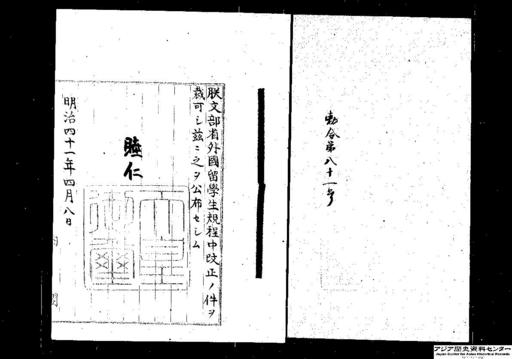 勅令第八十一号
朕文部省外國留學生規程中改正ノ件ヲ
裁可シ茲ニ之ヲ公布セシム
睦仁
天皇御璽
明治四十一年四月八日
内閣
アジア歴史資料センター
Japan Center for Asian Historical Records